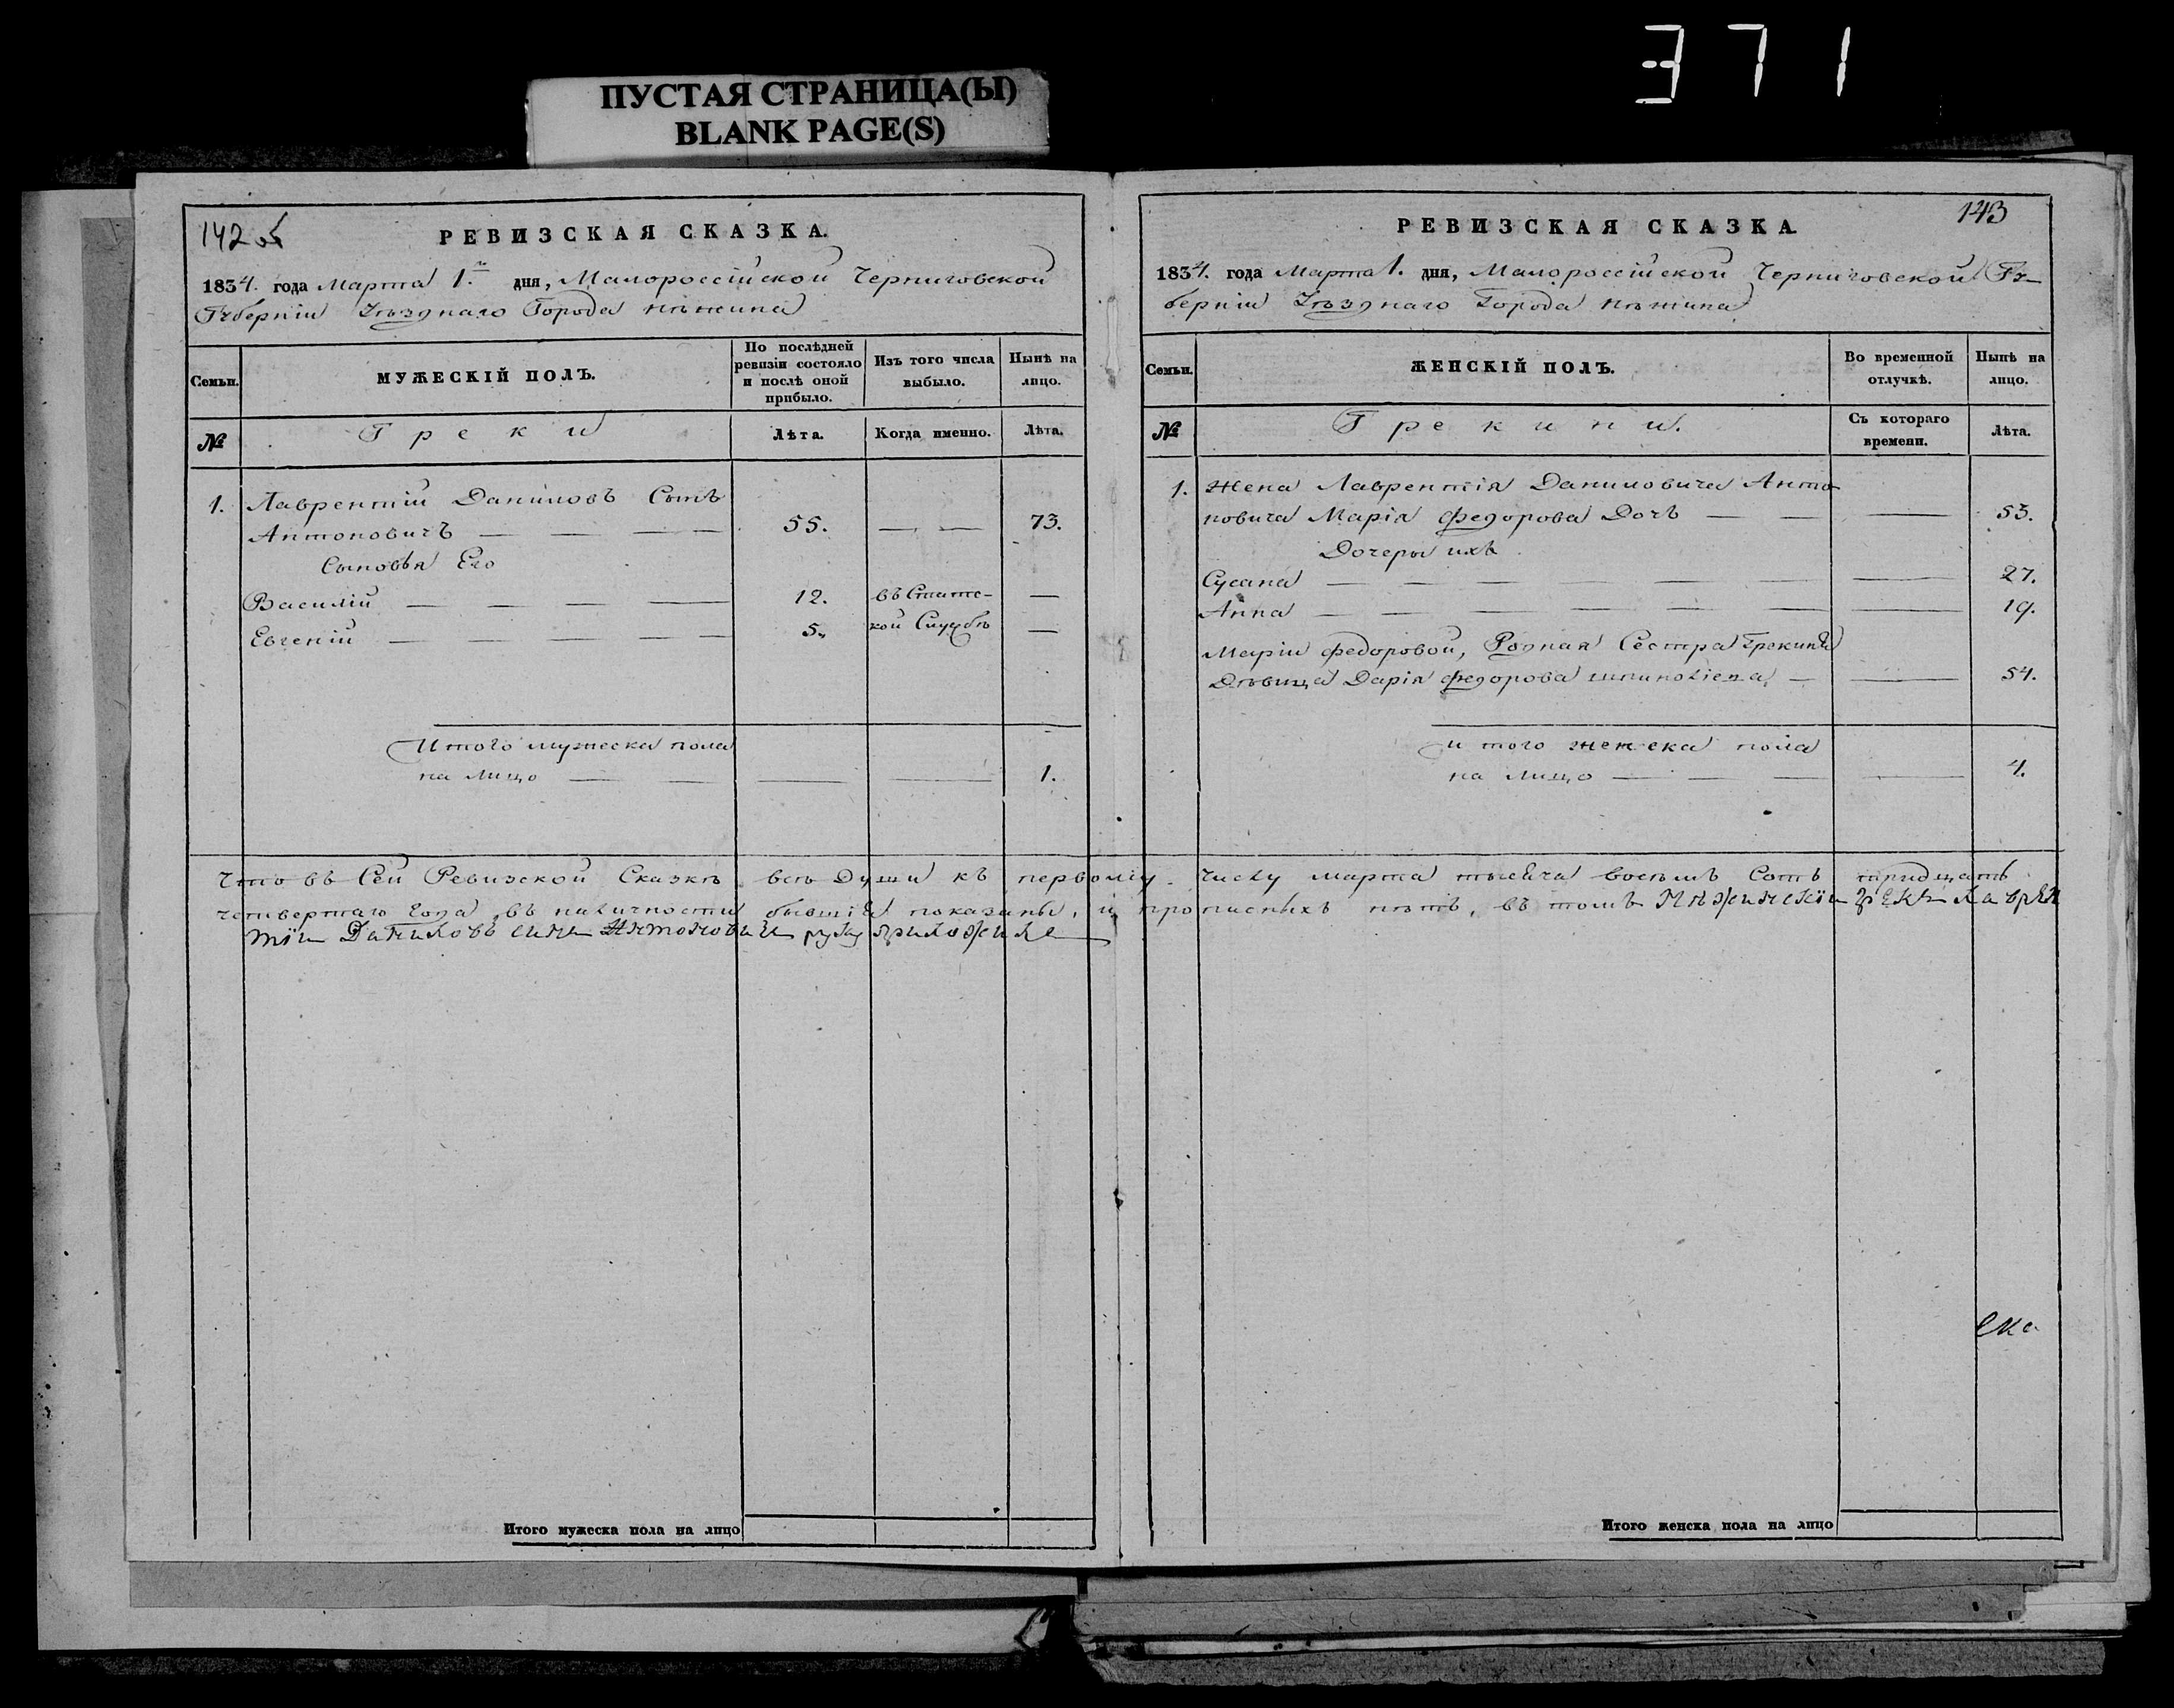 371
ПУСТАЯ СТРАНИЦА(Ы)
BLANK PAGE(S)
142 об
РЕВИЗСКАЯ СКАЗКА.
1834. года Марта 1.го дня, Малороссійской Черниговской
Губерніи Уѣзднаго Города Нѣжина
Семьи.
МУЖЕСКІЙ ПОЛЪ.
По послѣдней ревизіи состояло и послѣ оной прибыло.
Изъ того числа выбыло.
Нынѣ на лицо.
№
Греки
Лѣта.
Когда именно.
Лѣта.
1. Лаврентій Даниловъ Сынъ
Антоновичъ — — — 55. — — 73.
Сыновья Его
Василій — — — — 12. въ Статс- —
Евгеній — — — — 5. кой Службѣ —
Итого мужеска пола
на лицо — — — — 1.
143
РЕВИЗСКАЯ СКАЗКА.
1834. года Марта 1. дня, Малороссійской Черниговской Гу-
берніи Уѣзднаго Города Нѣжина
Семьи.
ЖЕНСКІЙ ПОЛЪ.
Во временной отлучкѣ.
Нынѣ на лицо.
№
Грекини.
Съ котораго времени.
Лѣта.
1. Жена Лаврентія Даниловича Анто-
новича Марія Федорова Дочь — — — 53.
Дочеры ихъ
Сусана — — — — — — 27.
Анна — — — — — — 19.
Маріи Федоровой, Родная Сестра Грекиня
Дѣвица Дарія Федорова — — 54.
и того женска пола
на лицо — — — — 4.
Что въ Сей Ревизской Сказкѣ всѣ Души къ первому числу марта тысяча восемь Сотъ тридцать
четвертаго Года въ наличности бывшія показаны, и прописныхъ нѣтъ, въ томъ Нѣжинскіи грекъ Лаврен
тіи Даниловъ синъ Антоновичъ руку приложилъ
ска
Итого мужеска пола на лицо
Итого женска пола на лицо